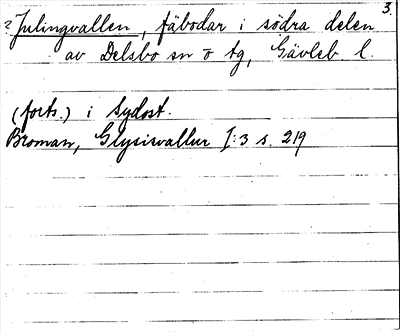 3.
? Julingvallen, fäbodar i södra delen
av Delsbo sn o tg, Gävleb. l.
(forts.) i sydost.
Broman, Glysisvallur I:3 s. 219